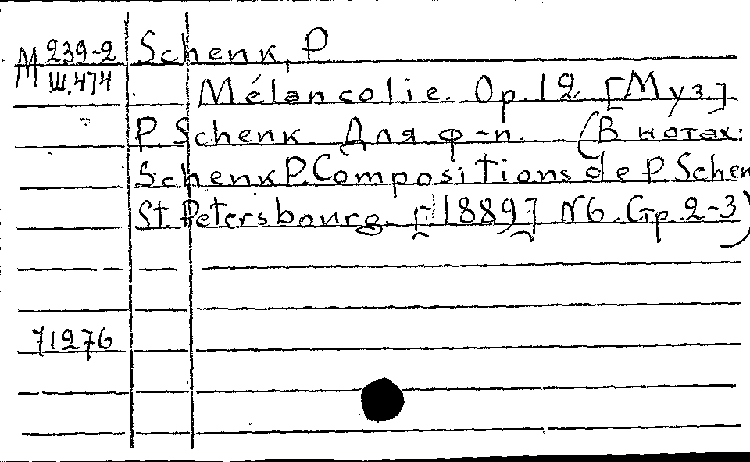 М 239-2 Schenk, P
Ш.474
Mélancolie. Op.12 [Муз.]
P. Schenk Для ф-п. (В нотах:
Schenk P. Compositions de P Schen
St. Petersbourg. [1889] N6. Стр. 2-3)
71276